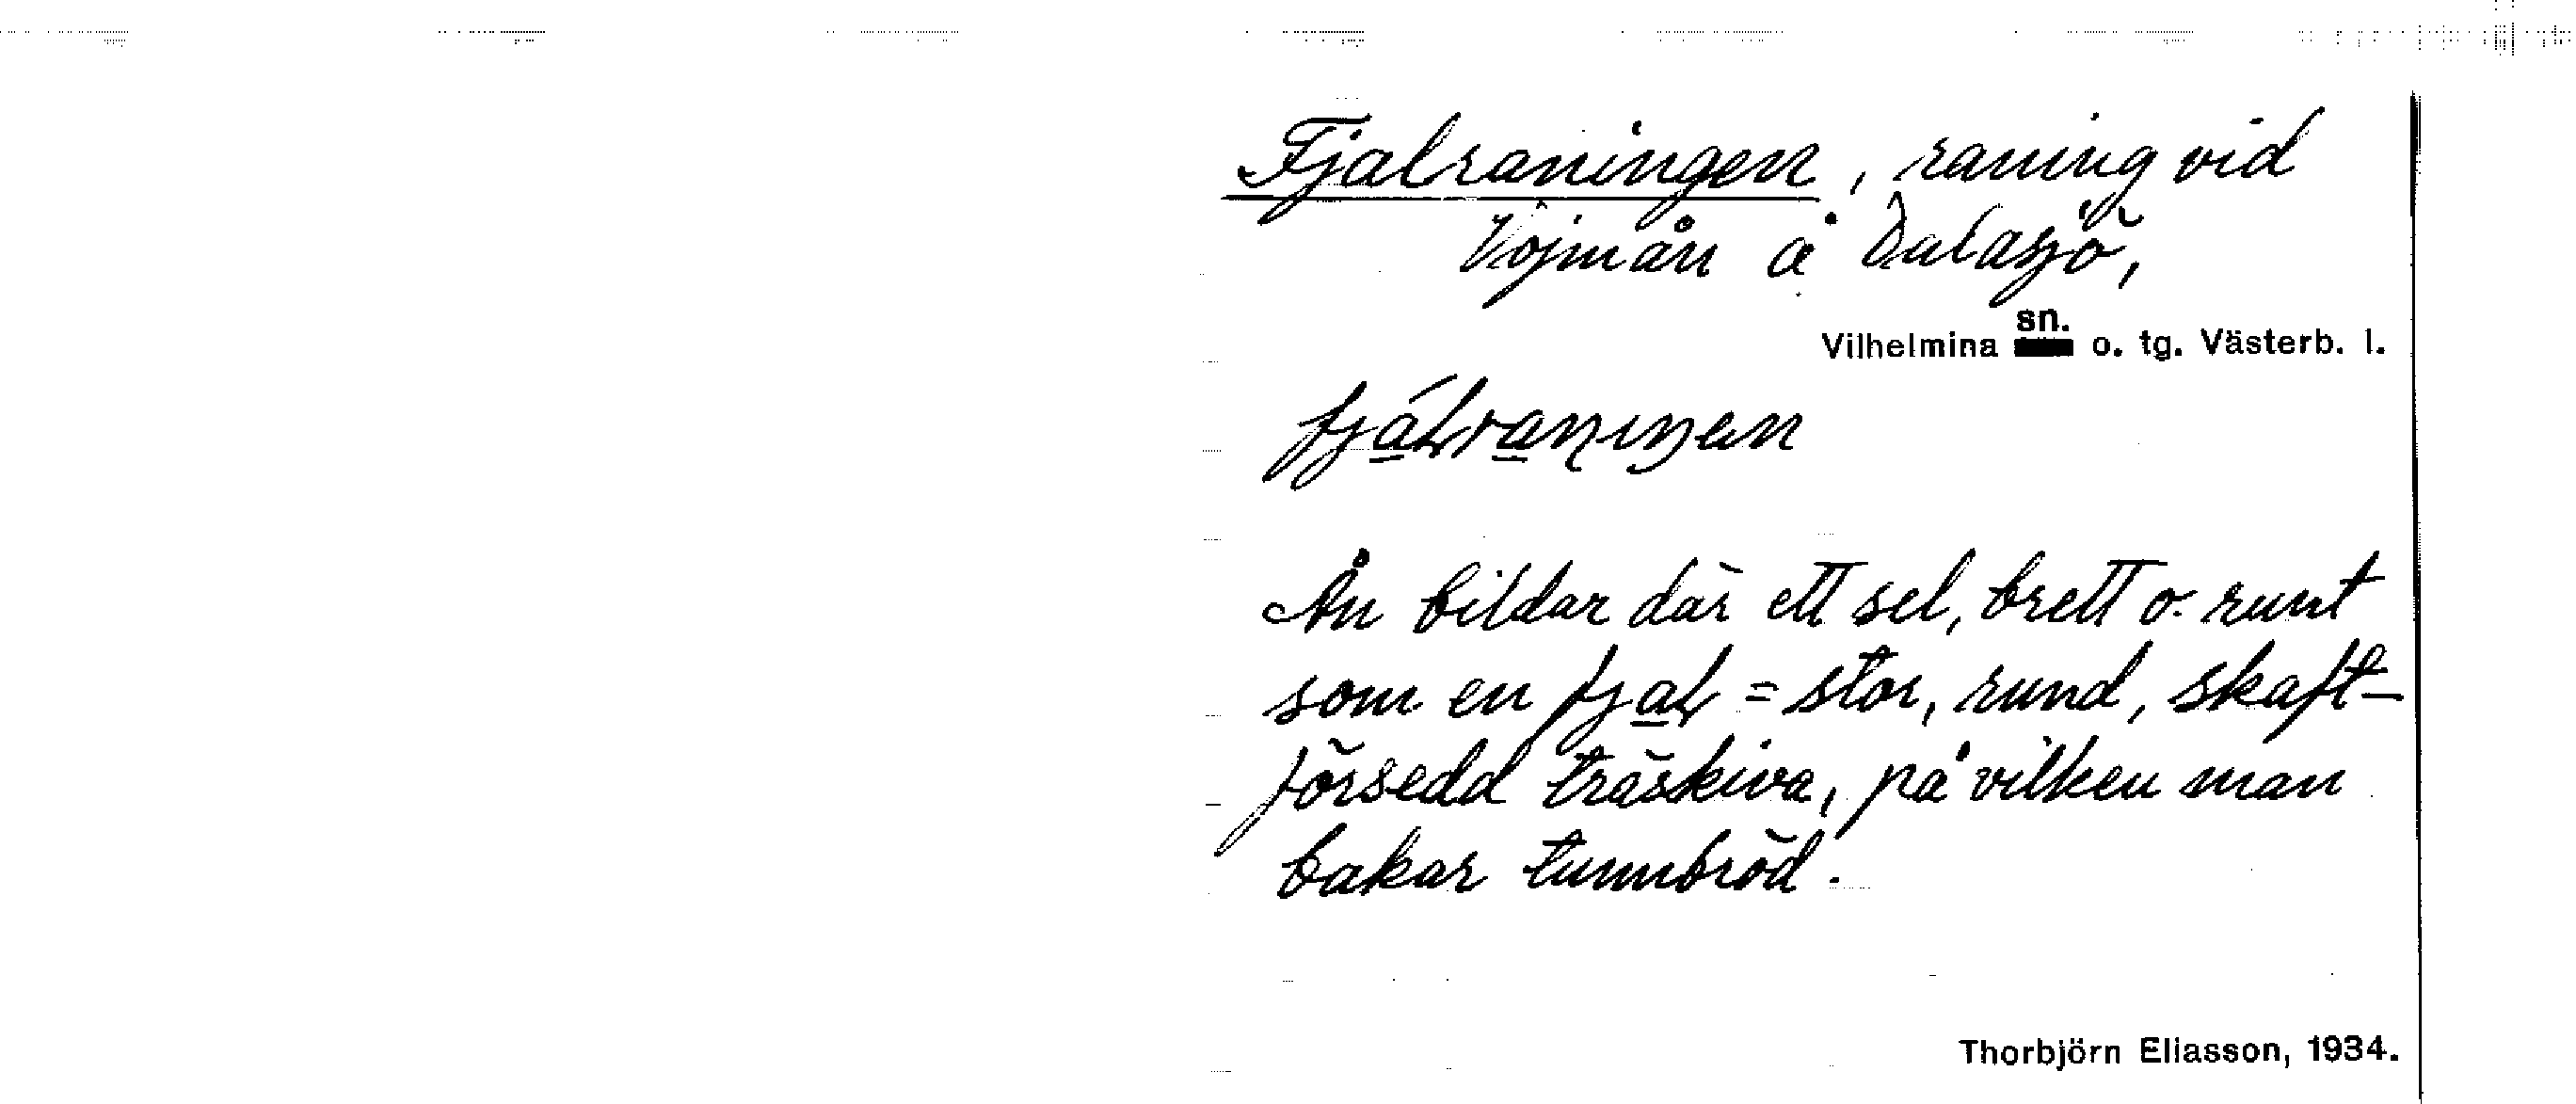 Fjalraningen, raning vid
Vojmån å Dalasjö,
Vilhelmina sn. o. tg. Västerb. l.
Ån bildar där ett sel, brett o. runt
som en fjaɫ = stor, rund, skaft-
försedd träskiva, på vilken man
bakar tunnbröd.
Thorbjörn Eliasson, 1934.